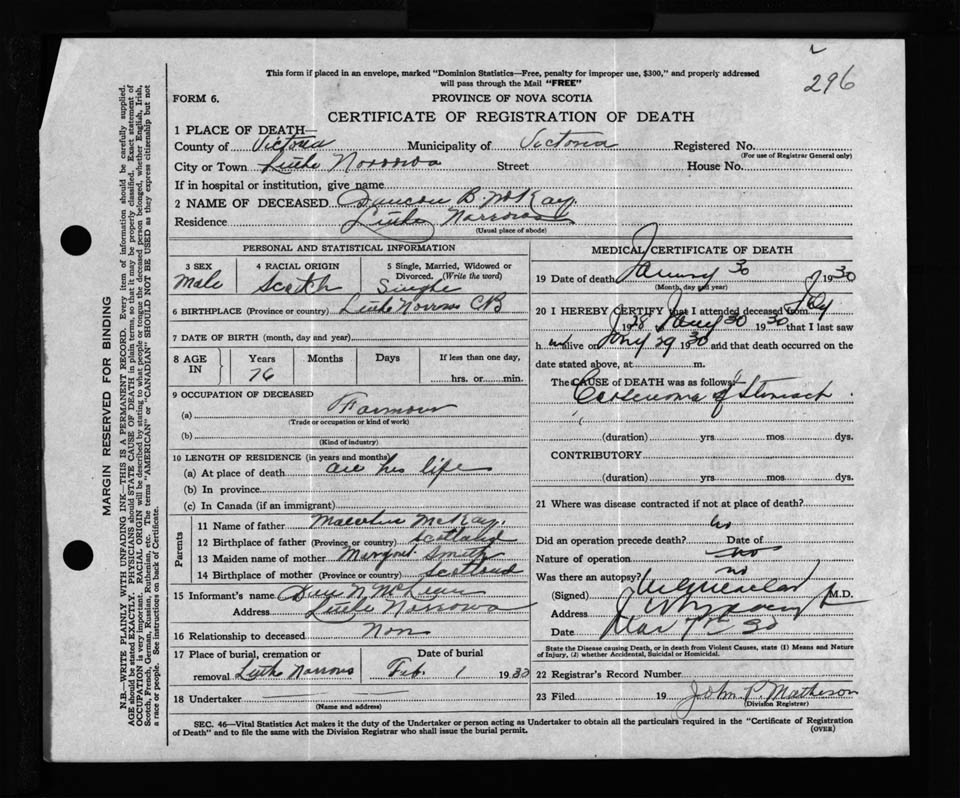 296
This form if placed in an envelope, marked "Dominion Statistics—Free, penalty for improper use, $300," and properly addressed
will pass through the Mail "FREE"
FORM 6.
PROVINCE OF NOVA SCOTIA
CERTIFICATE OF REGISTRATION OF DEATH
1 PLACE OF DEATH—
County of Victoria Municipality of Victoria Registered No.
(For use of Registrar General only)
City or Town Little Narrows Street House No.
If in hospital or institution, give name
2 NAME OF DECEASED Duncan B. McKay.
Residence Little Narrows
(Usual place of abode)
PERSONAL AND STATISTICAL INFORMATION
3 SEX 4 RACIAL ORIGIN 5 Single, Married, Widowed or
Divorced. (Write the word)
Male Scotch Single
6 BIRTHPLACE (Province or country) Little Narrows CB
7 DATE OF BIRTH (month, day and year)
8 AGE IN Years Months Days If less than one day,
76 hrs. or min.
9 OCCUPATION OF DECEASED
(a) Farmour
(Trade or occupation or kind of work)
(b)
(Kind of industry)
10 LENGTH OF RESIDENCE (in years and months)
(a) At place of death all his life
(b) In province
(c) In Canada (if an immigrant)
Parents
11 Name of father McKay.
12 Birthplace of father (Province or country) Scotland
13 Maiden name of mother Margret Smith
14 Birthplace of mother (Province or country) Scotland
15 Informant's name N. McLean
Address Little Narrows
16 Relationship to deceased Non
17 Place of burial, cremation or Date of burial
removal Little Narrows Feb. 1 1930
18 Undertaker
(Name and address)
MEDICAL CERTIFICATE OF DEATH
19 Date of death January 30 1930
(Month, day and year)
20 I HEREBY CERTIFY that I attended deceased from July
1928 Jany 30 1930 that I last saw
h im alive on Jany 29 1930 and that death occurred on the
date stated above, at m.
The CAUSE of DEATH was as follows:
Carcenoma of Stomach
(duration) yrs mos dys.
CONTRIBUTORY
(duration) yrs mos dys.
21 Where was disease contracted if not at place of death?
Did an operation precede death? no Date of
Nature of operation no
Was there an autopsy? no
(Signed) M.D.
Address
Date 30
State the Disease causing Death, or in death from Violent Causes, state (1) Means and Nature
of Injury, (2) whether Accidental, Suicidal or Homicidal.
22 Registrar's Record Number
23 Filed 19 John P. Matheson
(Division Registrar)
SEC. 46—Vital Statistics Act makes it the duty of the Undertaker or person acting as Undertaker to obtain all the particulars required in the "Certificate of Registration
of Death" and to file the same with the Division Registrar who shall issue the burial permit.
(OVER)
MARGIN RESERVED FOR BINDING
N.B.—WRITE PLAINLY WITH UNFADING INK—THIS IS A PERMANENT RECORD. Every item of information should be carefully supplied.
AGE should be stated EXACTLY. PHYSICIANS should STATE CAUSE OF DEATH in plain terms, so that it may be properly classified. Exact statement of
OCCUPATION is very important. RACIAL ORIGIN will be described by stating to what people or tongue the deceased person belonged, whether English, Irish,
Scotch, French, German, Russian, Ruthenian, etc. The terms "AMERICAN" or "CANADIAN" SHOULD NOT BE USED as they express citizenship but not
a race or people. See instructions on back of Certificate.